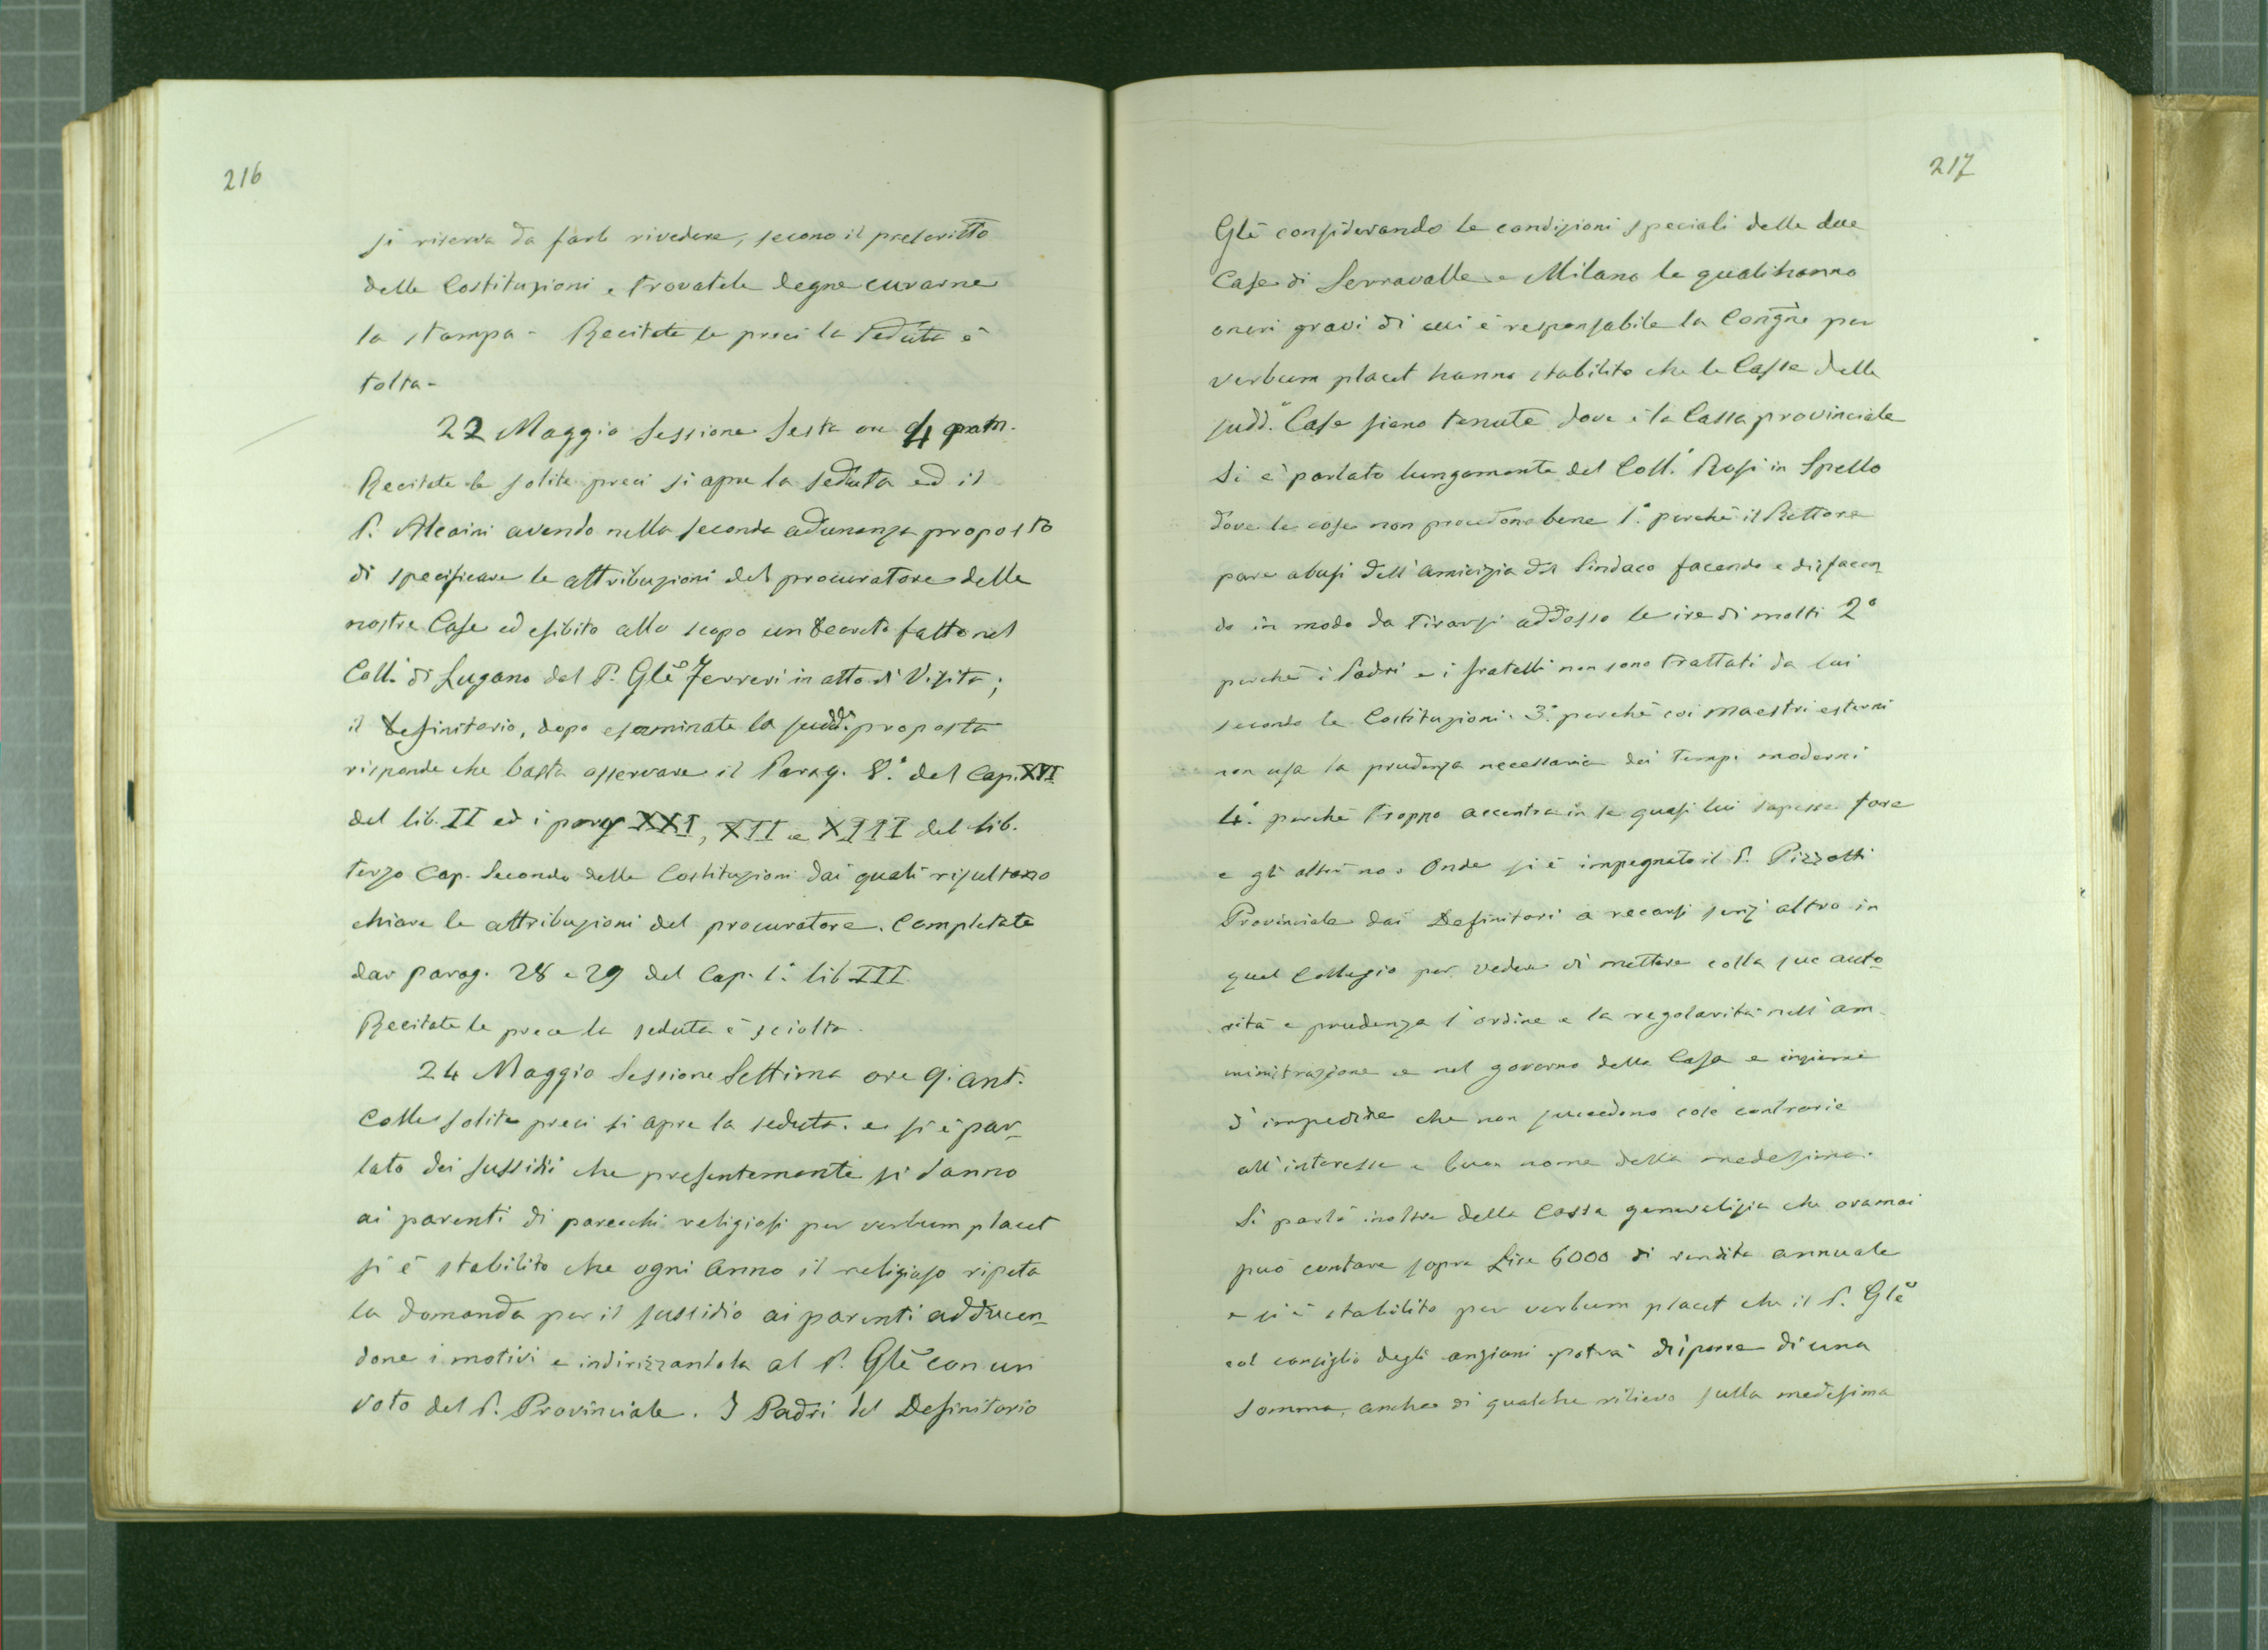 216
si riserva da farle rivedere, secono il prescritto
delle Costituzioni e trovatele degne curarne
la stampa - Recitate le preci la Seduta è
tolta -
22 Maggio Sessione Sesta ore 4 pom.
Recitate le solite preci si apre la seduta ed il
P. Alcaini avendo nella seconda adunanza proposto
di specificare le attribuzioni del procuratore delle
nostre Case ed esibito allo scopo un Decreto fatto nel
Coll.º di Lugano dal P. Glẽ Ferreri in atto di Visita;
il Definitorio, dopo esaminate la sudd.ª proposta
risponde che basta osservare il Parag. 8.º del Cap. XVI
del lib. II ed i parag XXI, XII e XIII del lib.
terzo Cap. Secondo delle Costituzioni dai quali risultano
chiare le attribuzioni del procuratore. Completate
dar parag. 28 e 29 del Cap. 1.º lib III
Recitate le prece la seduta è sciolta.
24 Maggio Sessione Settima ore 9. ant.
Colle solite preci si apre la seduta. e si è par_
lato dei sussidii che presentemente si danno
ai parenti di parecchi religiosi per verbum placet
si è stabilito che ogni anno il religioso ripeta
la domanda per il sussidio ai parenti adducen_
done i motivi e indirizzandola al P. Glẽ con un
voto del P. Provinciale. I Padri del Definitorio
217
Glẽ considerando le condizioni speciali delle due
Case di Serravalle e Milano le quali hanno
oneri gravi di cui è responsabile la Congñe per
verbum placet hanno stabilito che le Casse delle
sudd.e Case siano tenute dove è la Cassa provinciale
Si è parlato lungamente del Coll.º Rosi in Spello
dove le cose non procedono bene 1.º perchè il Rettore
pare abusi dell'amicizia del Sindaco facendo e disfacen_
do in modo da tirarsi addosso le ire di molti 2º
perchè i Padri e i fratelli non sono trattati da lui
secondo le Costituzioni. 3.º perchè coi maestri esterni
non usa la prudenza necessaria dei tempi moderni
4.º perchè troppo accentra in se quasi lui sapesse fare
e gli altri no. Onde si è impegnato il P. Pizzotti
Provinciale dai Definitori a recarsi senz'altro in
quel Collegio per vedere di mettere colla sue auto_
rità e prudenza l'ordine e la regolarità nell'am_
ministrazione e nel governo della Casa e insieme
d'impedire che non succedono cose contrarie
all'interesse e buon nome della medesima.
Si parlò inoltre della Cassa generalizia che oramai
può contare sopra Lire 6000 di rendita annuale
e si è stabilito per verbum placet che il P. Glẽ
col consiglio degli anziani potrà disporre di una
somma, anche di qualche rilievo sulla medesima